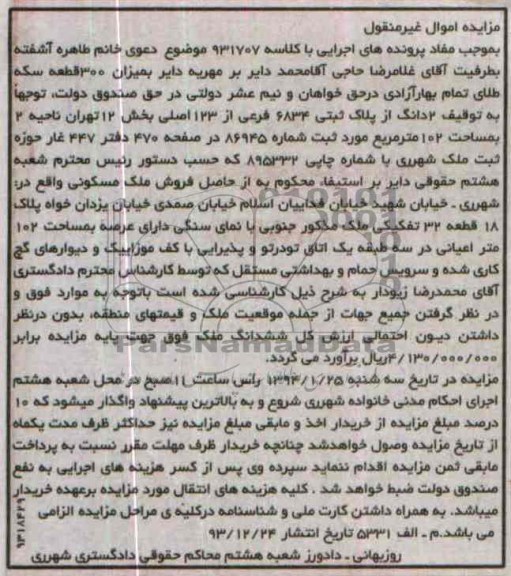 مزایده اموال غیرمنقول
بموجب مفاد پرونده های اجرایی با کلاسه ۹۳۱۷۰۷ موضوع دعوی خانم طاهره آشفته
بطرفیت آقای غلامرضا حاجی آقامحمد دایر بر مهریه دایر بمیزان ۳۰۰قطعه سکه
طلای تمام بهارآزادی درحق خواهان و نیم عشر دولتی در حق صندوق دولت، توجهاً
به توقیف ۲دانگ از پلاک ثبتی ۶۸۳۴ فرعی از ۱۲۳اصلی بخش ۱۲تهران ناحیه ۲
بمساحت ۱۰۲مترمربع مورد ثبت شماره ۸۶۹۴۵ در صفحه ۴۷۰ دفتر ۴۴۷ غار حوزه
ثبت ملک شهرری با شماره چاپی ۸۹۵۳۳۲ که حسب دستور رئیس محترم شعبه
هشتم حقوقی دایر بر استیفاء محکوم به از حاصل فروش ملک مسکونی واقع در:
شهرری ـ خیابان شهید خیابان فداییان اسلام خیابان صمدی خیابان یزدان خواه پلاک
۱۸ قطعه ۳۲ تفکیکی ملک مذکور جنوبی با نمای سنگی دارای عرصه بمساحت ۱۰۲
متر اعیانی در سه طبقه یک اتاق تودرتو و پذیرایی با کف موزاییک و دیوارهای گچ
کاری شده و سرویس حمام و بهداشتی مستقل که توسط کارشناس محترم دادگستری
آقای محمدرضا زیودار به شرح ذیل کارشناسی شده است باتوجه به موارد فوق و
در نظر گرفتن جمیع جهات از جمله موقعیت ملک و قیمتهای منطقه، بدون درنظر
داشتن دیون احتمالی ارزش کل ششدانگ ملک فوق جهت پایه مزایده برابر
۴/۱۳۰/۰۰۰/۰۰۰ریال برآورد می گردد.
مزایده در تاریخ سه شنبه ۱۳۹۴/۱/۲۵ راس ساعت ۱۱صبح در محل شعبه هشتم
اجرای احکام مدنی خانواده شهرری شروع و به بالاترین پیشنهاد واگذار میشود که ۱۰
درصد مبلغ مزایده از خریدار اخذ و مابقی مبلغ مزایده نیز حداکثر ظرف مدت یکماه
از تاریخ مزایده وصول خواهدشد چنانچه خریدار ظرف مهلت مقرر نسبت به پرداخت
مابقی ثمن مزایده اقدام ننماید سپرده وی پس از کسر هزینه های اجرایی به نفع
صندوق دولت ضبط خواهد شد . کلیه هزینه های انتقال مورد مزایده برعهده خریدار
میباشد. به همراه داشتن کارت ملی و شناسنامه درکلیه ی مراحل مزایده الزامی
می باشد.م ـ الف ۵۳۳۱ تاریخ انتشار ۹۳/۱۲/۲۴
روزبهانی ـ دادورز شعبه هشتم محاکم حقوقی دادگستری شهرری
۹۳۱۸۴۲۹
ParsNamadData